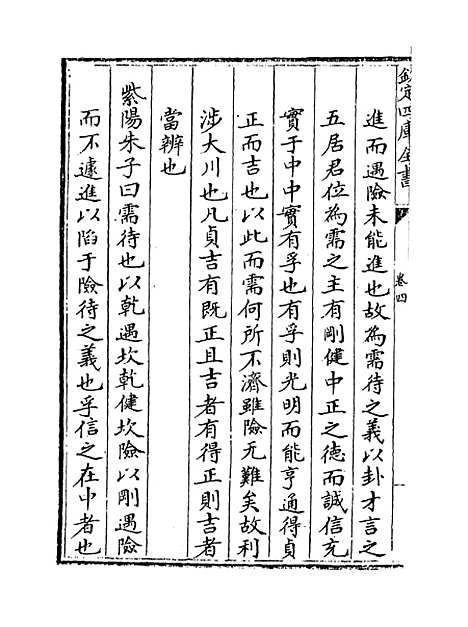 欽定四庫全書
卷四
進而遇險未能進也故為需待之義以卦才言之
五居君位為需之主有剛健中正之德而誠信充
實于中中實有孚也有孚則光明而能亨通得貞
正而吉也以此而需何所不濟雖險无難矣故利
涉大川也凡貞吉有既正且吉者有得正則吉者
當辨也
紫陽朱子曰需待也以乾遇坎乾健坎險以剛遇險
而不遽進以陷于險待之義也孚信之在中者也